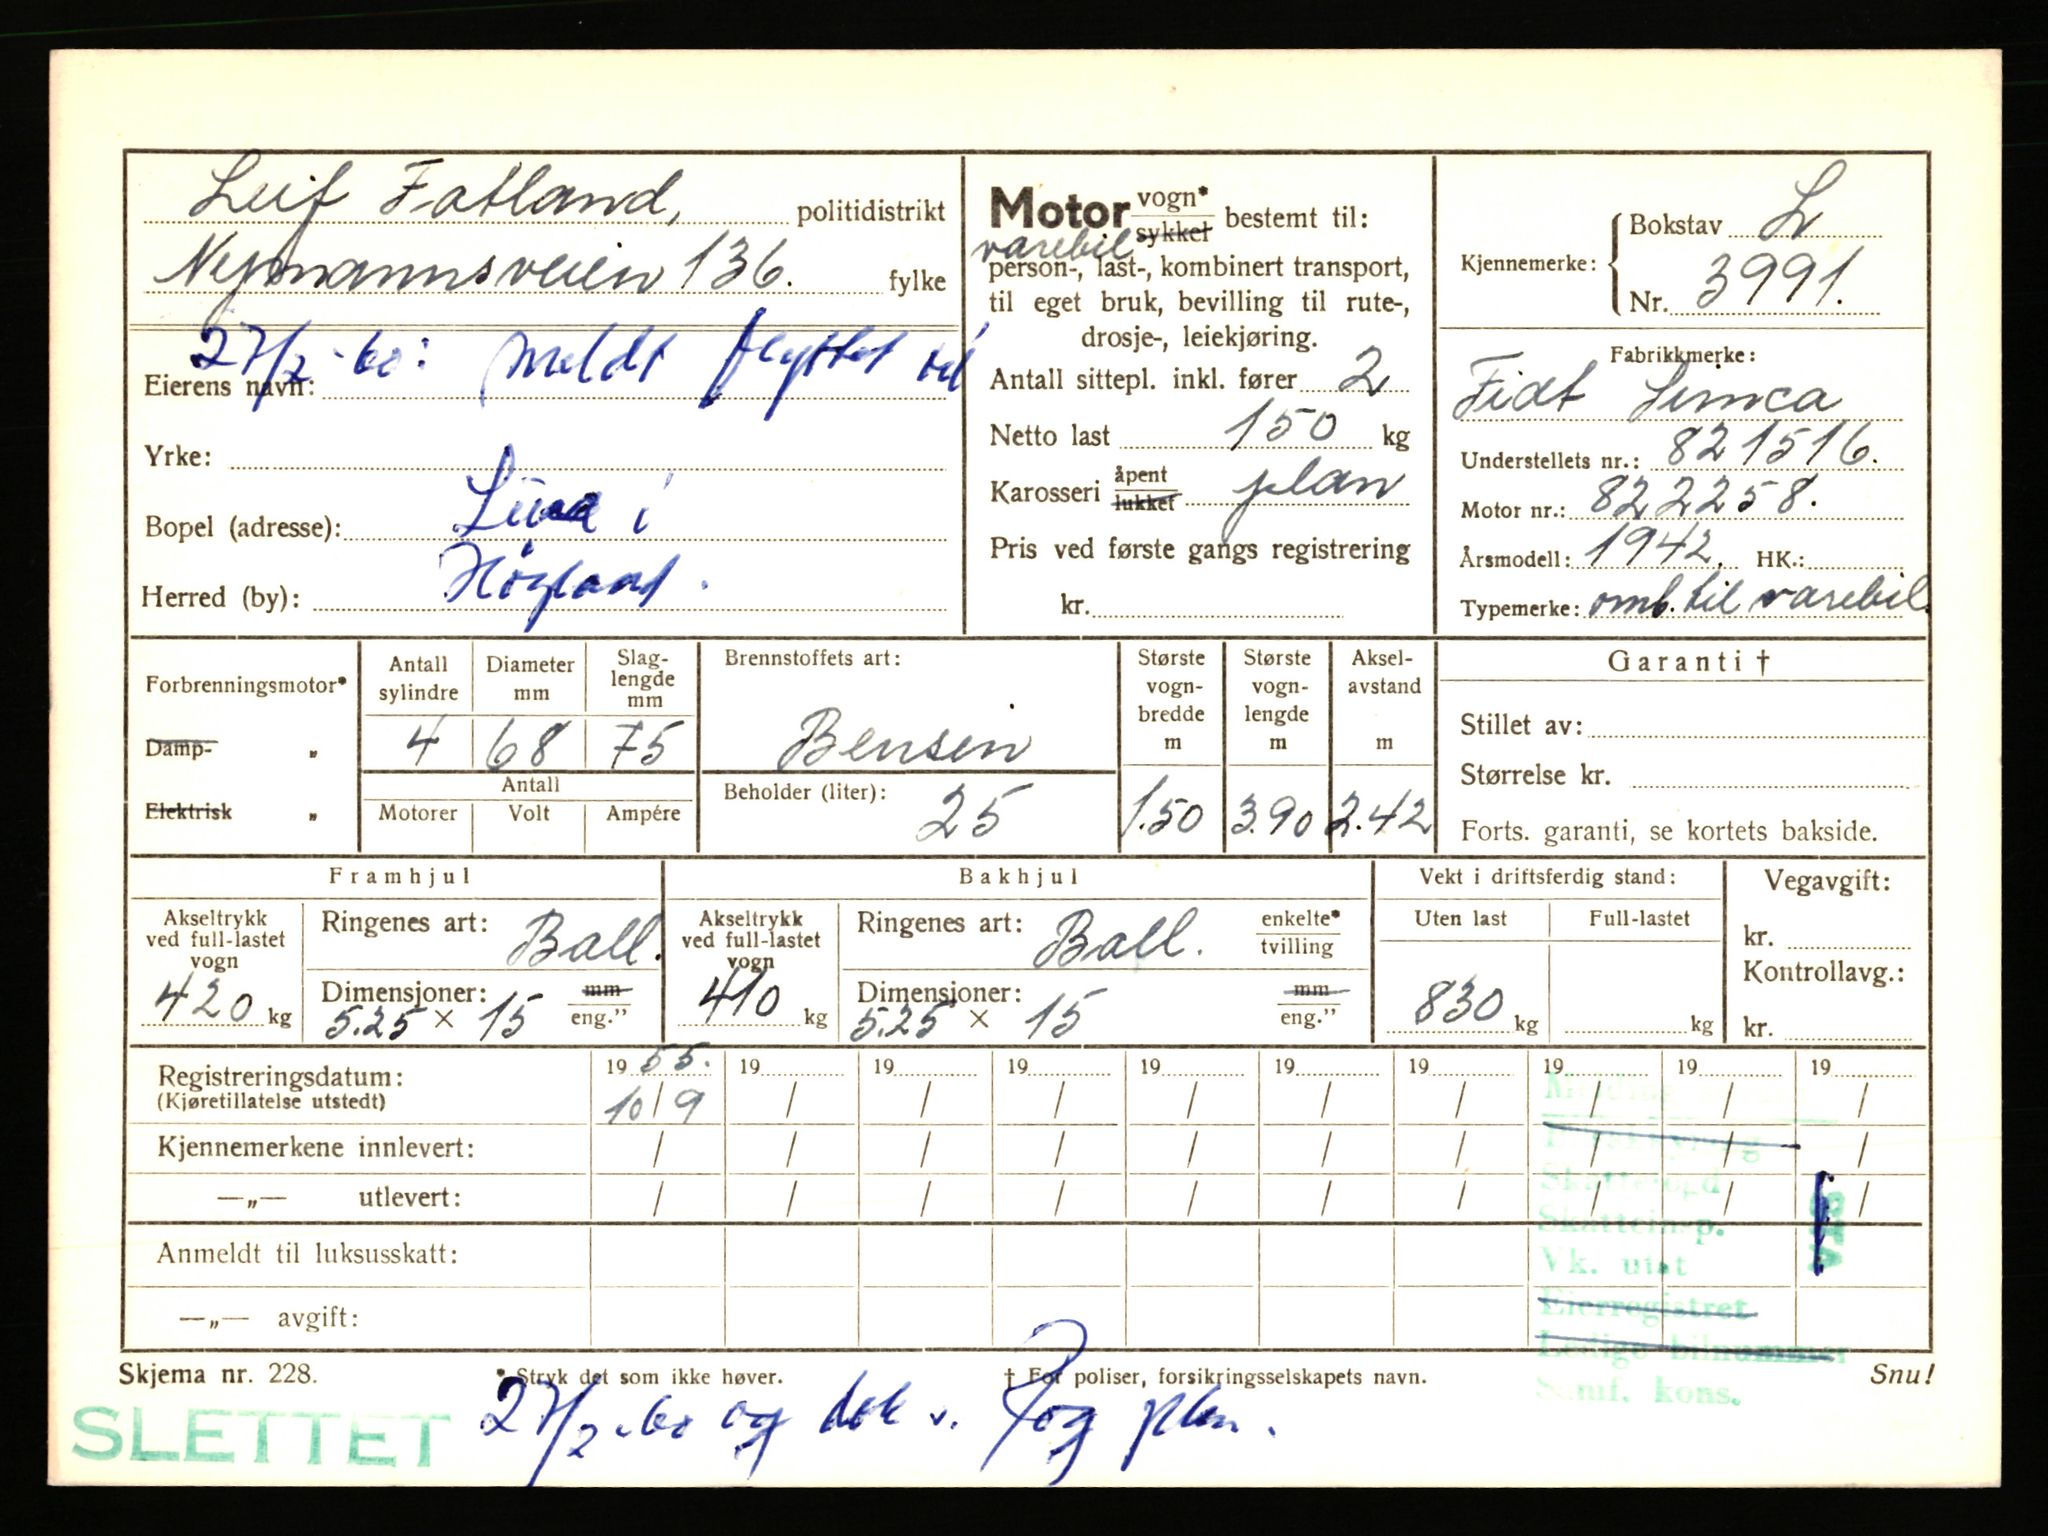 Leif Fatland, politidistrikt
Nymannsveien 136. fylke
27/2-60: Meldt flyttet til
Eierens navn:
Yrke:
Bopel (adresse): Lura i
Herred (by): Høyland.
Motor vogn* sykkel bestemt til:
varebil
person-, last-, kombinert transport,
til eget bruk, bevilling til rute-,
drosje-, leiekjøring.
Antall sittepl. inkl. fører 2
Netto last 150 kg
Karosseri åpent lukket plan
Pris ved første gangs registrering
kr.
Kjennemerke: Bokstav L
Nr. 3991.
Fabrikkmerke:
Fiat Simca
Understellets nr.: 821516.
Motor nr.: 822258.
Årsmodell: 1942. HK.:
Typemerke: omb. til varebil.
Forbrenningsmotor*
Damp- „
Elektrisk „
Antall sylindre 4
Diameter mm 68
Slaglengde mm 75
Antall
Motorer Volt Ampére
Brennstoffets art:
Bensin
Beholder (liter): 25
Største vogn-bredde m 1.50
Største vogn-lengde m 3.90
Aksel-avstand m 2.42
Garanti †
Stillet av:
Størrelse kr.
Forts. garanti, se kortets bakside.
Framhjul
Akseltrykk ved full-lastet vogn 420 kg
Ringenes art: Ball.
Dimensjoner: 5.25 × 15 mm eng."
Bakhjul
Akseltrykk ved full-lastet vogn 410 kg
Ringenes art: Ball. enkelte* tvilling
Dimensjoner: 5.25 × 15 mm eng."
Vekt i driftsferdig stand:
Uten last Full-lastet
830 kg kg
Vegavgift:
kr.
Kontrollavg.:
kr.
Registreringsdatum: 1955. 19 19 19 19 19 19 19 19 19
(Kjøretillatelse utstedt) 10/9 / / / / / / / / /
Kjennemerkene innlevert: / / / / / / / / / /
—„— utlevert: / / / / / / / / / /
Anmeldt til luksusskatt:
—„— avgift:
Skattefogd
Skatteinsp.
Vk. utst
Eierregistret
Ledige bilnummer
Samf. kons.
Skjema nr. 228.
* Stryk det som ikke høver.
† For poliser, forsikringsselskapets navn.
Snu!
SLETTET
27/2-60 og